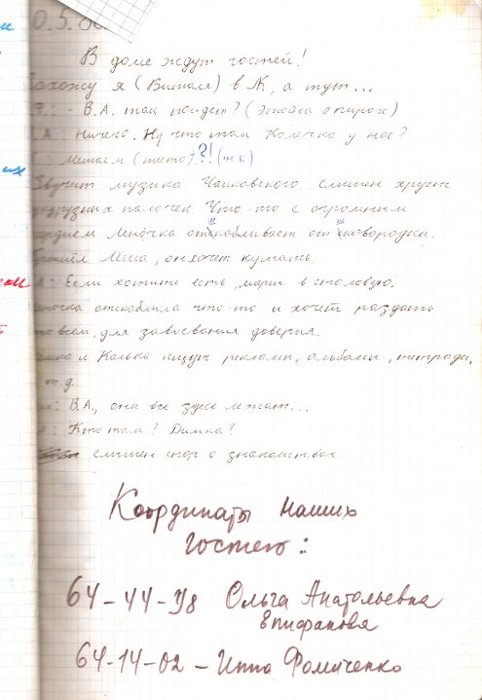 0.5.
В доме ждут гостей!
захожу я (Виталя) в К, а тут...
- В.А. так пойдет? (Этого о пироге)
.А.: Ничего. Ну что там Колечка у нас?
: Мешаем (тесто)?!
Звучит музыка Чайковского слышен хруст
кукурузных палочек Что-то с огромным
усердием Леночка отскобливает от сковородки.
Лёша, он хочет кушать.
: Если хотите есть, марш в столовую.
Леночка отскоблила что-то и хочет раздать
всем, для завоевания доверия.
и Колька ищут рекламы, альбомы, тетради,
т.д.
: В.А., они все здесь лежат...
: Кто там? Димка?
слышен спор о знакомствах
Координаты наших
гостей:
64-44-78 Ольга Анатольевна
Епифанова
64-14-02 - Инна Фомиченко